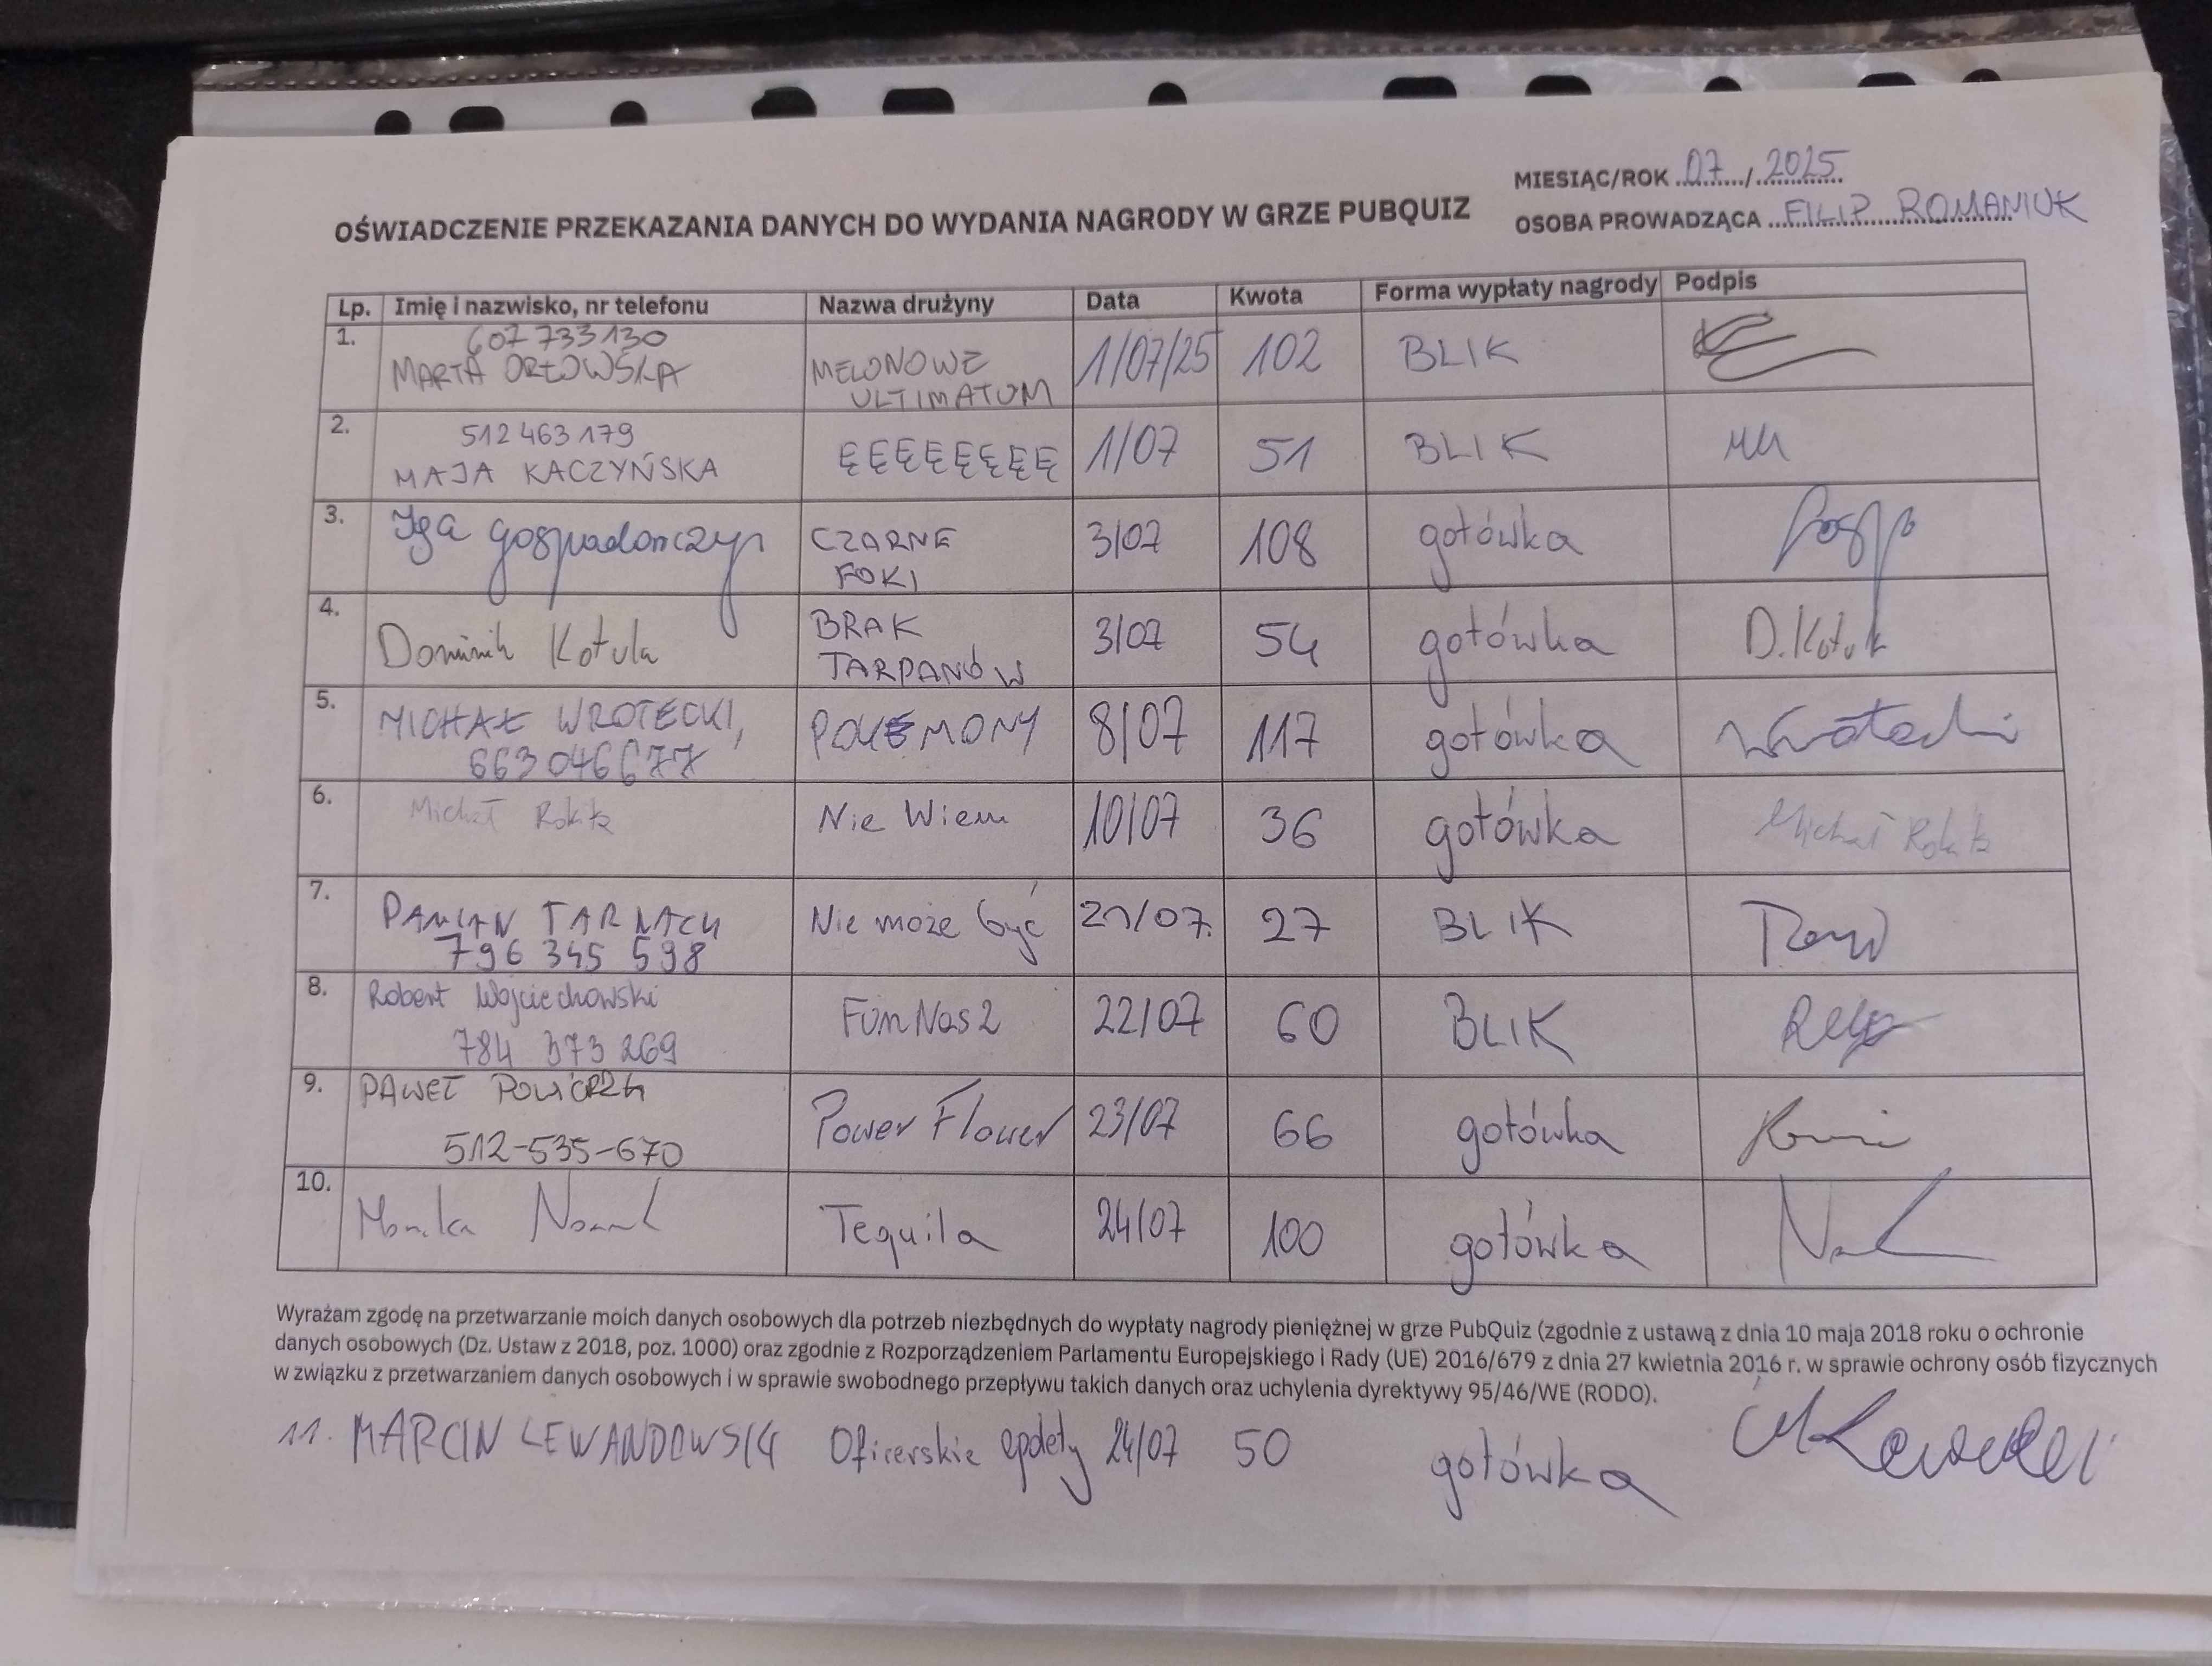 MIESIĄC/ROK 07 / 2025
OŚWIADCZENIE PRZEKAZANIA DANYCH DO WYDANIA NAGRODY W GRZE PUBQUIZ
OSOBA PROWADZĄCA FILIP ROMANIUK
Lp. Imię i nazwisko, nr telefonu Nazwa drużyny Data Kwota Forma wypłaty nagrody Podpis
1. 607 733 130
MARTA ORŁOWSKA MELONOWE ULTIMATUM 1/07/25 102 BLIK
2. 512 463 179
MAJA KACZYŃSKA ĘĘĘĘĘĘĘĘ 1/07 51 BLIK
3. Iga CZARNE FOKI 3/07 108 gotówka
4. Dominik Kotula BRAK TARPANÓW 3/07 54 gotówka D. Kotula
5. MICHAŁ WROTECKI,
663 046 677 POKEMONY 8/07 117 gotówka Wrotecki
6. Michał Nie Wiem 10/07 36 gotówka Michał
7. DAMIAN
796 345 598 Nie może być 21/07. 27 BLIK
8. Robert Wojciechowski
784 373 269 FunNas2 22/07 60 BLIK
9. PAWEŁ
512-535-670 Power Flower 23/07 66 gotówka
10. Monika Tequila 24/07 100 gotówka
Wyrażam zgodę na przetwarzanie moich danych osobowych dla potrzeb niezbędnych do wypłaty nagrody pieniężnej w grze PubQuiz (zgodnie z ustawą z dnia 10 maja 2018 roku o ochronie
danych osobowych (Dz. Ustaw z 2018, poz. 1000) oraz zgodnie z Rozporządzeniem Parlamentu Europejskiego i Rady (UE) 2016/679 z dnia 27 kwietnia 2016 r. w sprawie ochrony osób fizycznych
w związku z przetwarzaniem danych osobowych i w sprawie swobodnego przepływu takich danych oraz uchylenia dyrektywy 95/46/WE (RODO).
11. MARCIN LEWANDOWSKI Oficerskie epolety 24/07 50 gotówka